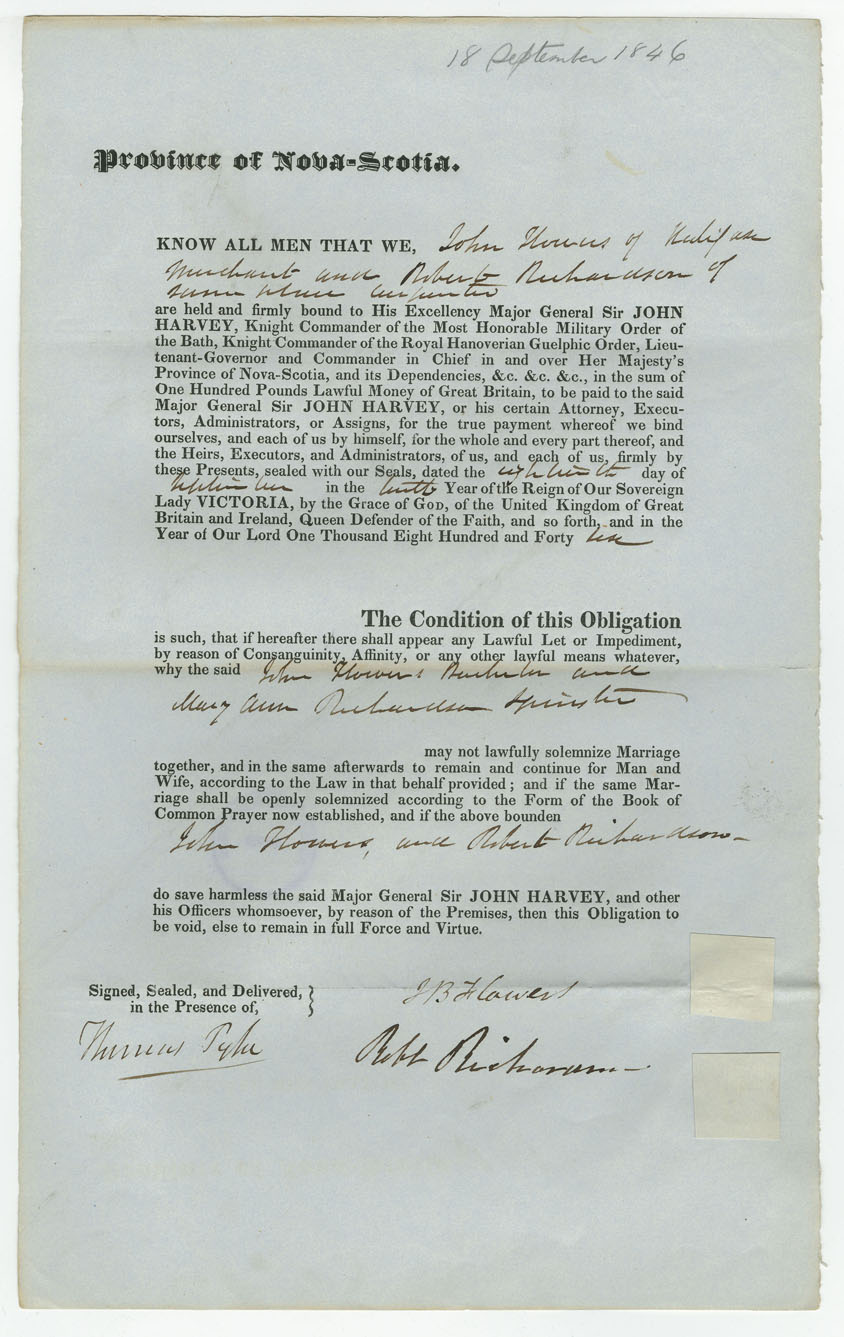 18 September 1846
Province of Nova-Scotia.
KNOW ALL MEN THAT WE, John Flowers of Halifax
Merchant and Robert Richardson of
same place carpenter
are held and firmly bound to His Excellency Major General Sir JOHN
HARVEY, Knight Commander of the Most Honorable Military Order of
the Bath, Knight Commander of the Royal Hanoverian Guelphic Order, Lieu-
tenant-Governor and Commander in Chief in and over Her Majesty's
Province of Nova-Scotia, and its Dependencies, &c. &c. &c., in the sum of
One Hundred Pounds Lawful Money of Great Britain, to be paid to the said
Major General Sir JOHN HARVEY, or his certain Attorney, Execu-
tors, Administrators, or Assigns, for the true payment whereof we bind
ourselves, and each of us by himself, for the whole and every part thereof, and
the Heirs, Executors, and Administrators, of us, and each of us, firmly by
these Presents, sealed with our Seals, dated the eighteenth day of
September in the tenth Year of the Reign of Our Sovereign
Lady VICTORIA, by the Grace of GOD, of the United Kingdom of Great
Britain and Ireland, Queen Defender of the Faith, and so forth, and in the
Year of Our Lord One Thousand Eight Hundred and Forty six
The Condition of this Obligation
is such, that if hereafter there shall appear any Lawful Let or Impediment,
by reason of Consanguinity, Affinity, or any other lawful means whatever,
why the said John Flowers Bachelor and
Mary Ann Richardson Spinster
may not lawfully solemnize Marriage
together, and in the same afterwards to remain and continue for Man and
Wife, according to the Law in that behalf provided ; and if the same Mar-
riage shall be openly solemnized according to the Form of the Book of
Common Prayer now established, and if the above bounden
John Flowers, and Robert Richardson
do save harmless the said Major General Sir JOHN HARVEY, and other
his Officers whomsoever, by reason of the Premises, then this Obligation to
be void, else to remain in full Force and Virtue.
Signed, Sealed, and Delivered,
in the Presence of,
J B Flowers
Thomas Pyke
Robt Richardson